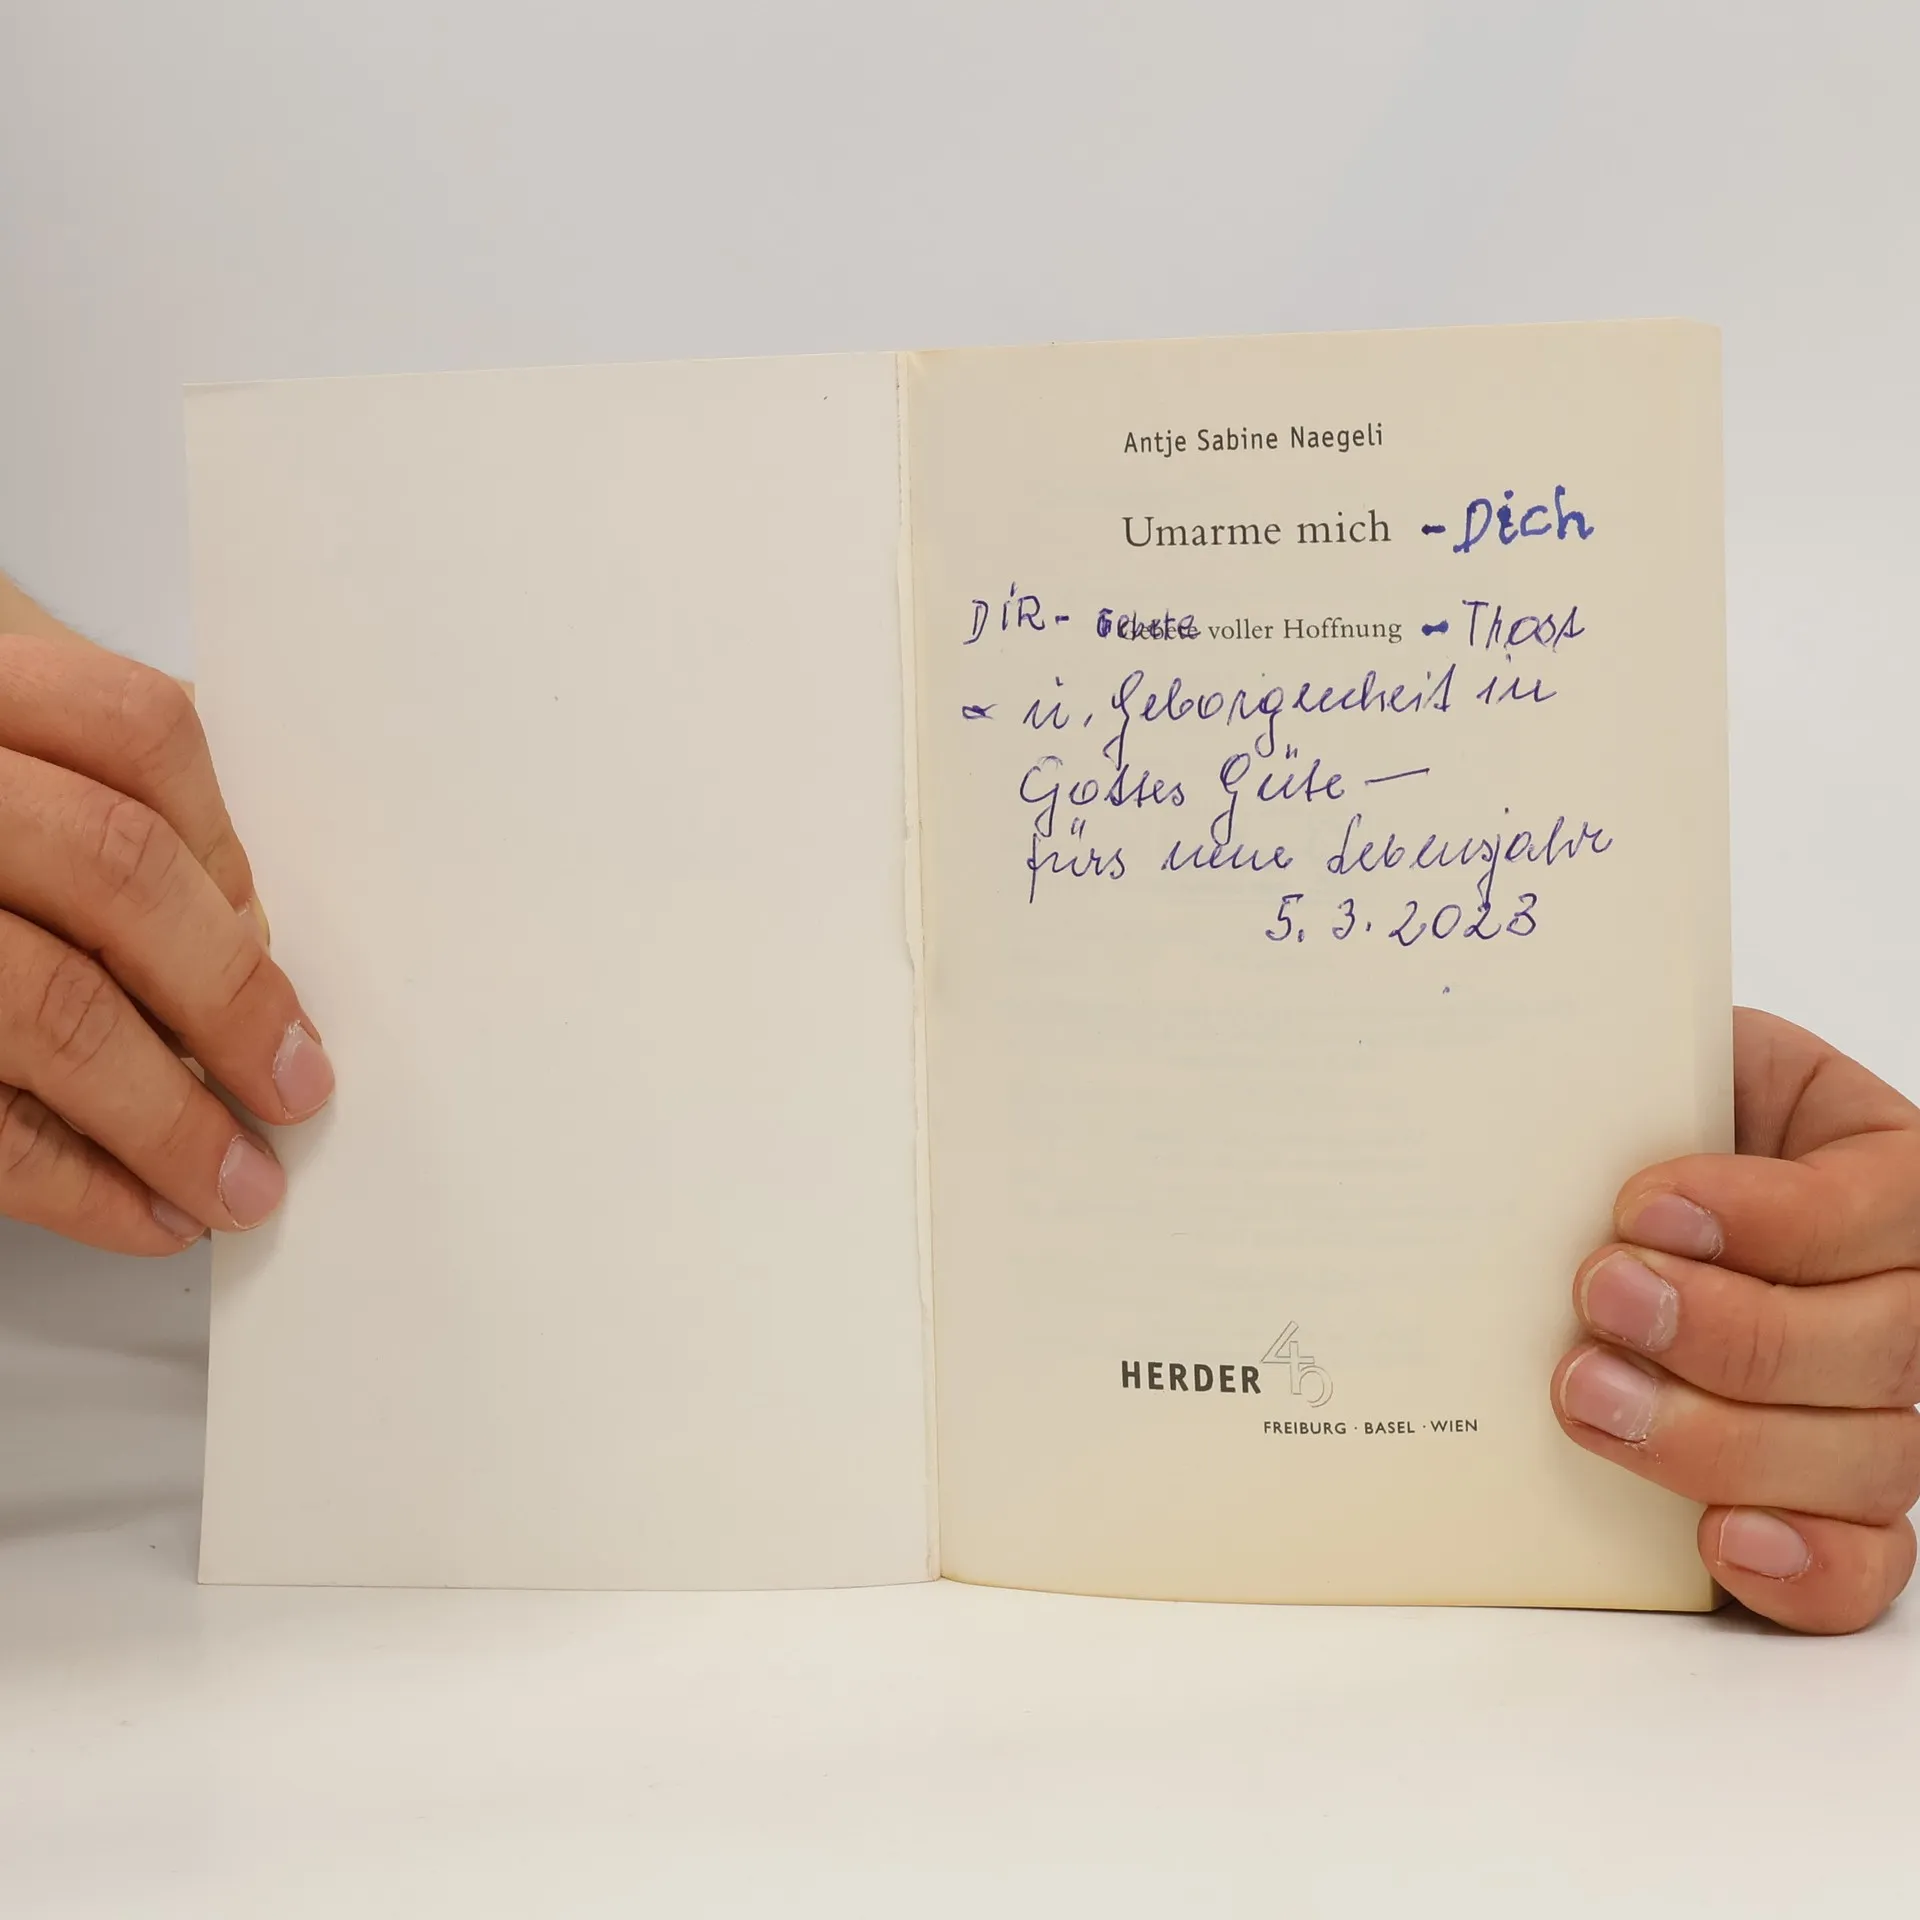 Antje Sabine Naegeli
Umarme mich - Dich
DIR - Gebete voller Hoffnung - Trost
u. Geborgenheit in
Gottes Güte —
fürs neue Lebensjahr
5. 3. 2023
HERDER
FREIBURG · BASEL · WIEN